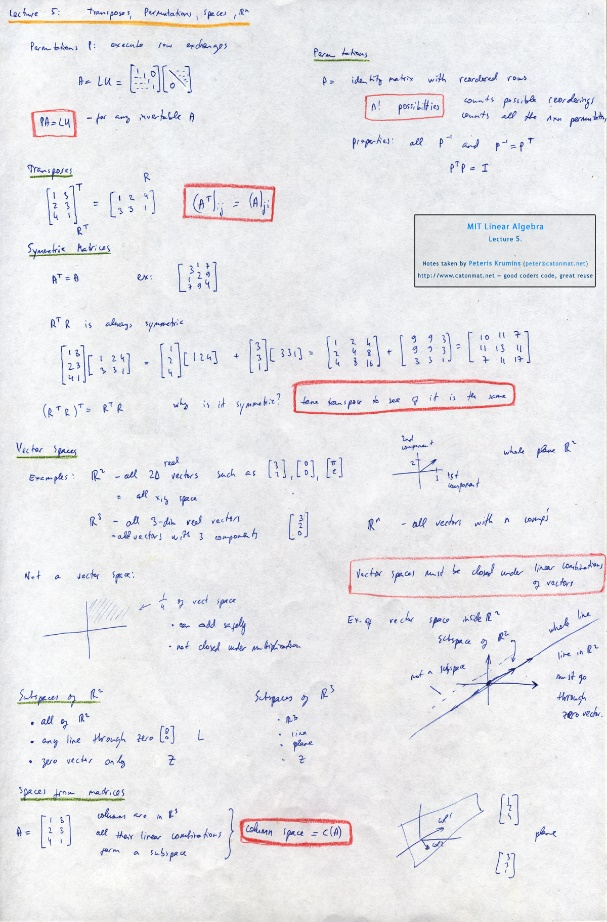 Lecture 5: Transposes, Permutations, spaces, Rⁿ
Permutations P: execute row exchanges
A = LU = [1 1 0 1] [0]
PA=LU - for any invertable A
Permutations
P= identity matrix with reordered rows
n! possibilities
counts possible reorderings
counts all the nxn permutations
properties: all P⁻¹ and P⁻¹ = Pᵀ
PᵀP = I
Transposes
R
[1 3
2 3
4 1]ᵀ = [1 2 4
3 3 1]
Rᵀ
(Aᵀ)ij = (A)ji
MIT Linear Algebra
Lecture 5.
Notes taken by Peteris Krumins (peter@catonmat.net)
http://www.catonmat.net – good coders code, great reuse
Symmetric Matrices
Aᵀ = A ex: [3 1 7
1 2 9
7 9 4]
RᵀR is always symmetric
[1 3
2 3
4 1] [1 2 4
3 3 1] = [1
2
4] [1 2 4] + [3
3
1] [3 3 1] = [1 2 4
2 4 8
4 8 16] + [9 9 3
9 9 3
3 3 1] = [10 11 7
11 13 11
7 11 17]
(RᵀR)ᵀ = RᵀR why is it symmetric? take transpose to see if it is the same
Vector Spaces
Examples: R² - all 2D real vectors such as [3
2], [0
0], [π
e]
= all x,y space
R³ - all 3-dim real vectors
- all vectors with 3 components
[3
2
0]
2nd component
2
3
1st component
whole plane R²
Rⁿ - all vectors with n comp's
Vector spaces must be closed under linear combinations
of vectors
Not a vector space:
1/4 of vect space
• can add safely
• not closed under multiplication
Ex. of vector space inside R²
subspace of R²
not a subspace
whole line
line in R²
must go
through
zero vector.
Subspaces of R²
• all of R²
• any line through zero [0
0] L
• zero vector only Z
Subspaces of R³
• R³
• line
• plane
• Z
Spaces from matrices
A = [1 3
2 3
4 1]
columns are in R³
all their linear combinations
form a subspace
column space = C(A)
col1
col2
[1
2
4]
plane
[3
3
1]